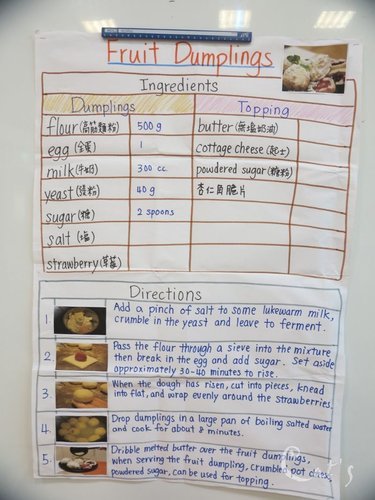 Fruit Dumplings
Ingredients
Dumplings
Topping
flour(高筋麵粉) 500 g
butter(無塩奶油)
egg(全蛋) 1
cottage cheese(起士)
milk(牛奶) 300 cc
powdered sugar(糖粉)
yeast(酵粉) 40 g
杏仁角脆片
sugar(糖) 2 spoons
salt(塩)
strawberry(草莓)
Directions
1. Add a pinch of salt to some lukewarm milk,
crumble in the yeast and leave to ferment.
2. Pass the flour through a sieve into the mixture
then break in the egg and add sugar. Set aside
approximately 30-40 minutes to rise.
3. When the dough has risen, cut into pieces, knead
into flat, and wrap evenly around the strawberries.
4. Drop dumplings in a large pan of boiling salted water
and cook for about 8 minutes.
5. Dribble melted butter over the fruit dumplings.
when serving the fruit dumpling, crumbled pot cheese,
powdered sugar, can be used for topping.